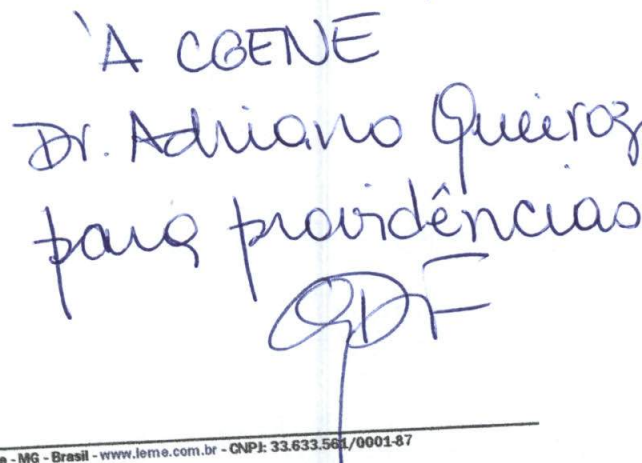 À CGENE
Dr. Adriano Queiroz
para providências
GDF
e - MG - Brasil - www.leme.com.br - CNPJ: 33.633.561/0001-87